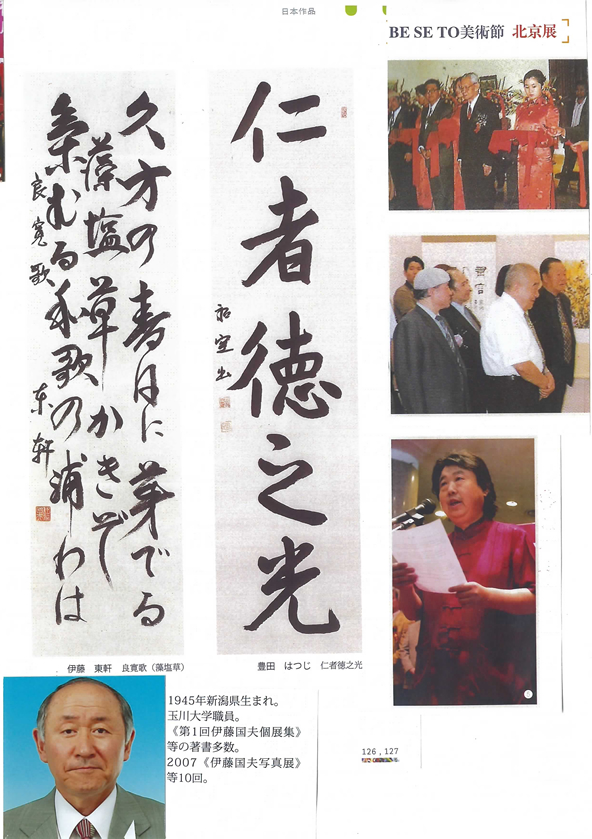 日本作品
BE SE TO美術節 北京展
仁者徳之光
久方の春日に芽でる
藻塩草かきぞ
集むる和歌の浦わは
良寛歌
東軒
伊藤 東軒 良寛歌（藻塩草）
豊田 はつじ 仁者徳之光
1945年新潟県生まれ。
玉川大学職員。
《第1回伊藤国夫個展集》
等の著書多数。
2007《伊藤国夫写真展》
等10回。
126，127